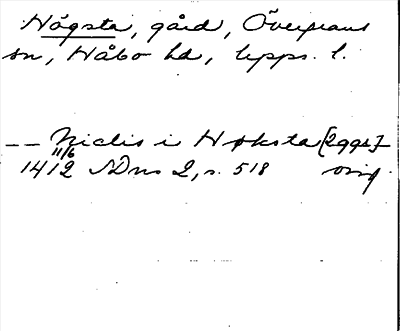 Högsta, gård, Övergrans
sn, Håbo hd, Upps. l.
-- Niclis i Høksta [2991]
11/6
1412 SDns 2, s. 518 orig